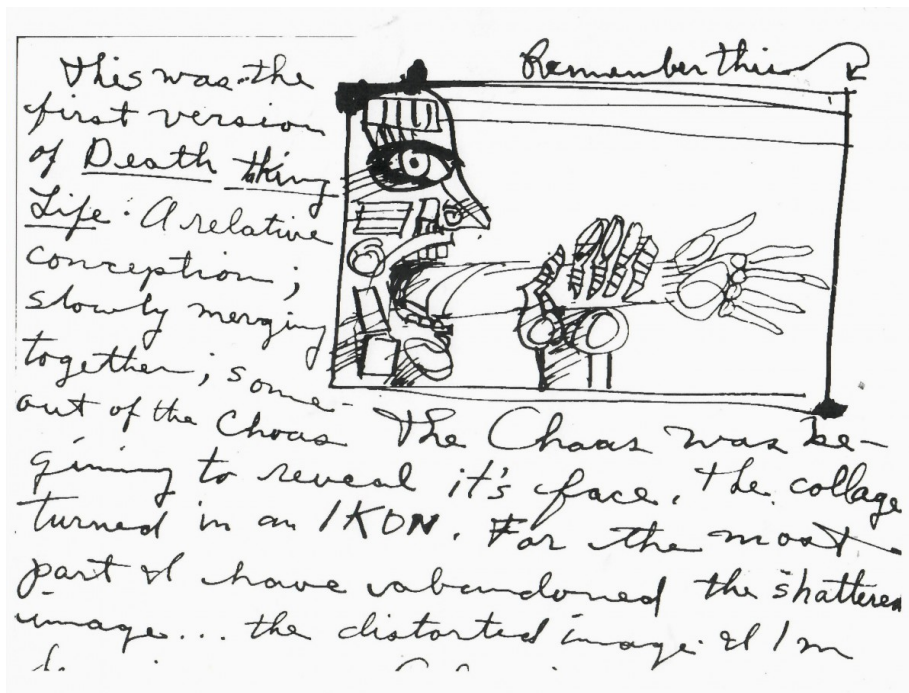 Remember this
This was the
first version
of Death taking
Life. A relative
conception;
slowly merging
together; some-
out of the Choas The Chaos was be-
gining to reveal it's face. The collage
turned in an IKON. For the most
part I have abandoned the shattered
image... the distorted image. I'm